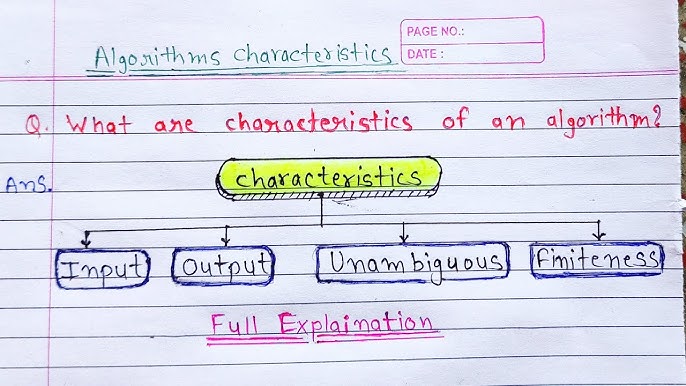 Algorithms characteristics
PAGE NO.:
DATE :
Q. What are characteristics of an algorithm?
Ans.
characteristics
Input Output Unambiguous Finiteness
Full Explaination